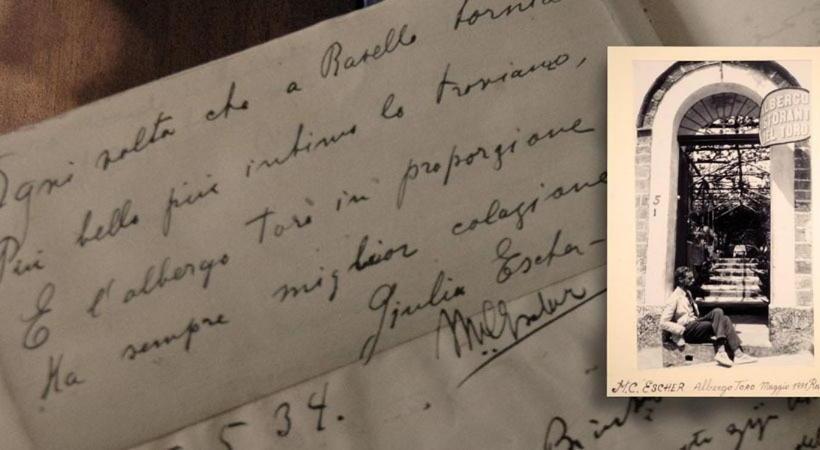 Ogni volta che a Ravello tornia
Più bello più intimo lo troviamo,
E l'albergo Toro in proporzione
Ha sempre miglior colazione
Giulia Escher-
MCEscher
5 34.
ALBERGO
RISTORANT
DEL TORO
51
M.C. ESCHER Albergo Toro Maggio 1931 Ra